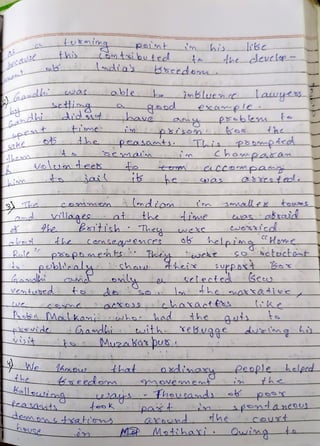 as a turning point in his life
because this contributed to the develop-
ment of India's freedom.
2) Gandhi was able to influence lawyers
by setting a good example.
Gandhi didn't have any problem to
spent time in prison for the
sake of the peasants. This prompted
them to remain in Champaran
& volunteer to accompany
him to jail if he was arrested.
3) The common Indian in smaller towns
and villages at the time was afraid
of the British. They were worried
about the consequences of helping "Home
Rule" proponents. They were so reluctant
to publicaly show their support for
Gandhi and only a selected few
ventured to do so. In the narrative,
we come across characters like
Proba Malkani who had the guts to
provide Gandhi with refugge during his
visit to Muzakarpur.
4) We know that ordinary people helped
the freedom movement in the
following ways - Thousands of poor
peasants took part in spontaneous
demonstrations around the court
house in Motihari. Owing to